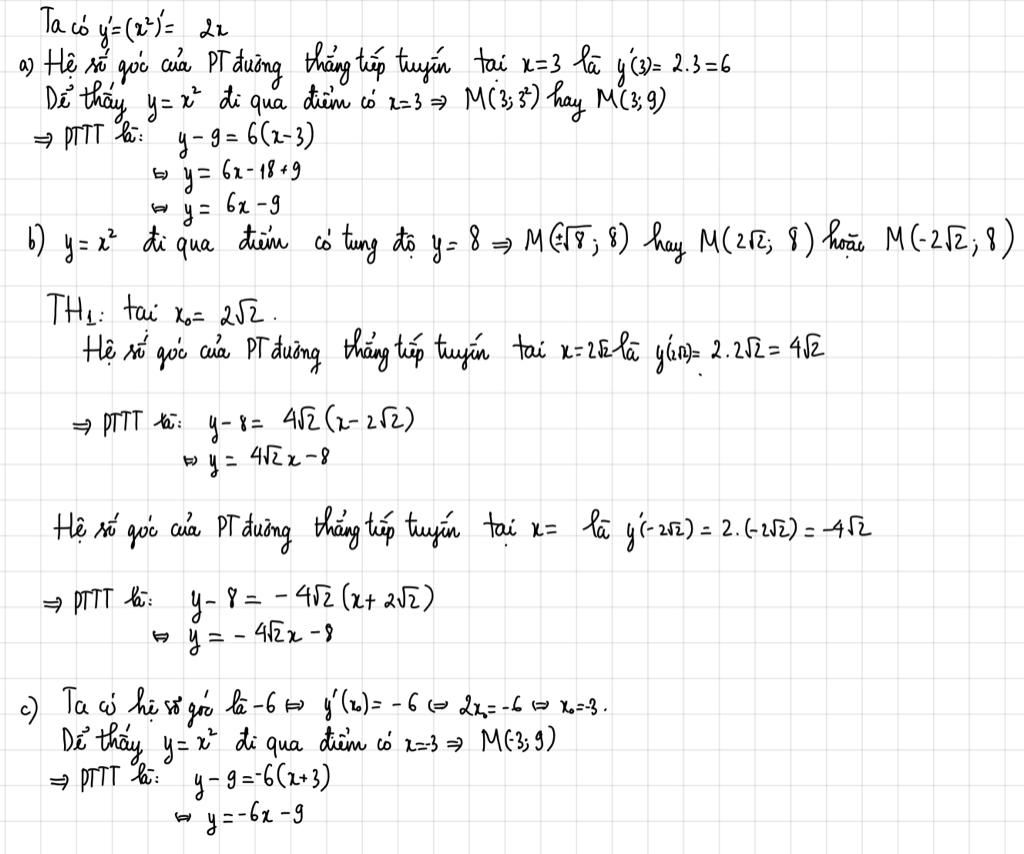 Ta có y'=(x²)'= 2x
a) Hệ số góc của PT đường thẳng tiếp tuyến tại x=3 là y'(3)= 2.3=6
Dễ thấy y=x² đi qua điểm có x=3 ⇒ M(3;3²) hay M(3;9)
⇒ PTTT là: y-9=6(x-3)
⇔ y= 6x-18+9
⇔ y= 6x-9
b) y=x² đi qua điểm có tung độ y=8 ⇒ M(±√8; 8) hay M(2√2; 8) hoặc M(-2√2; 8)
TH1: tại x₀= 2√2.
Hệ số góc của PT đường thẳng tiếp tuyến tại x=2√2 là y'(2√2)= 2.2√2= 4√2
⇒ PTTT là: y-8= 4√2(x-2√2)
⇔ y= 4√2x-8
Hệ số góc của PT đường thẳng tiếp tuyến tại x= là y'(-2√2) = 2.(-2√2) = -4√2
⇒ PTTT là: y-8= -4√2(x+2√2)
⇔ y= -4√2x-8
c) Ta có hệ số góc là -6 ⇔ y'(x₀)= -6 ⇔ 2x₀=-6 ⇔ x₀=-3.
Dễ thấy y=x² đi qua điểm có x=-3 ⇒ M(-3; 9)
⇒ PTTT là: y-9=-6(x+3)
⇔ y=-6x-9